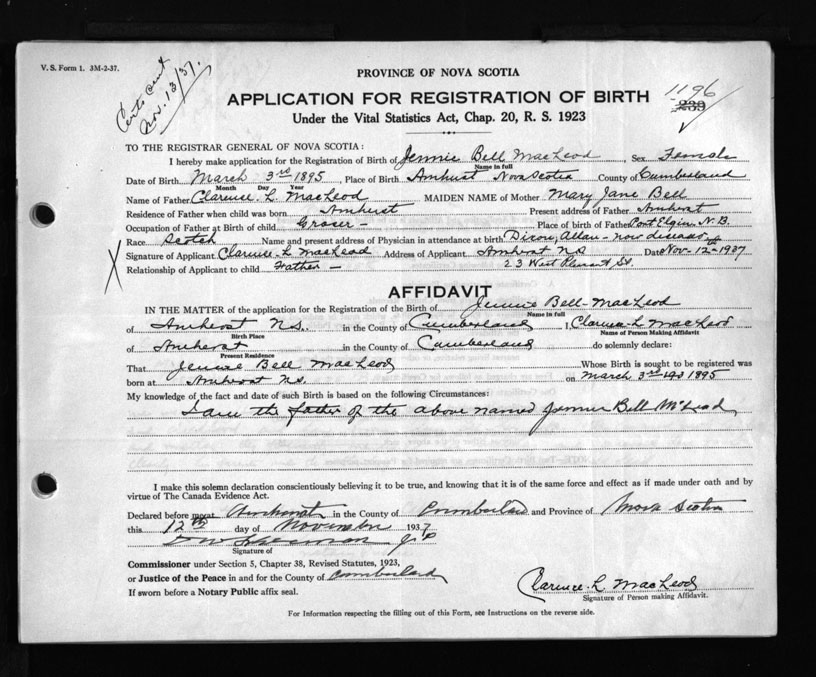 V. S. Form 1. 3M-2-37.
Certs sent
Nov. 13/37.
PROVINCE OF NOVA SCOTIA
1196
239
APPLICATION FOR REGISTRATION OF BIRTH
Under the Vital Statistics Act, Chap. 20, R. S. 1923
TO THE REGISTRAR GENERAL OF NOVA SCOTIA:
I hereby make application for the Registration of Birth of Jennie Bell MacLeod, Sex Female
Name in full
Date of Birth March 3rd 1895, Place of Birth Amherst Nova Scotia County of Cumberland
Month Day Year
Name of Father Clarence L. MacLeod MAIDEN NAME of Mother Mary Jane Bell
Residence of Father when child was born Amherst Present address of Father Amherst
Occupation of Father at Birth of child Grocer - Place of Birth of Father Port Elgin, N.B.
Race Scotch Name and present address of Physician in attendance at birth Dixon, Allan - now
Signature of Applicant Clarence L MacLeod Address of Applicant Amherst NS Date Nov-12-1937
Relationship of Applicant to child Father - 23 West Pleasant St.
AFFIDAVIT
IN THE MATTER of the application for the Registration of the Birth of Jennie Bell-MacLeod
Name in full
of Amherst N.S. in the County of Cumberland I, Clarence L MacLeod
Birth Place Name of Person Making Affidavit
of Amherst in the County of Cumberland do solemnly declare:
Present Residence
That Jennie Bell MacLeod Whose Birth is sought to be registered was
born at Amherst N.S. on March 3rd 193 1895
My knowledge of the fact and date of such Birth is based on the following Circumstances:
I am the father of the above named Jennie Bell McLeod
I make this solemn declaration conscientiously believing it to be true, and knowing that it is of the same force and effect as if made under oath and by
virtue of The Canada Evidence Act.
Declared before me at Amherst in the County of Cumberland and Province of Nova Scotia
this 12th day of November 1937
J.P.
Signature of
Commissioner under Section 5, Chapter 38, Revised Statutes, 1923,
or Justice of the Peace in and for the County of Cumberland
If sworn before a Notary Public affix seal.
Clarence L MacLeod
Signature of Person making Affidavit.
For Information respecting the filling out of this Form, see Instructions on the reverse side.